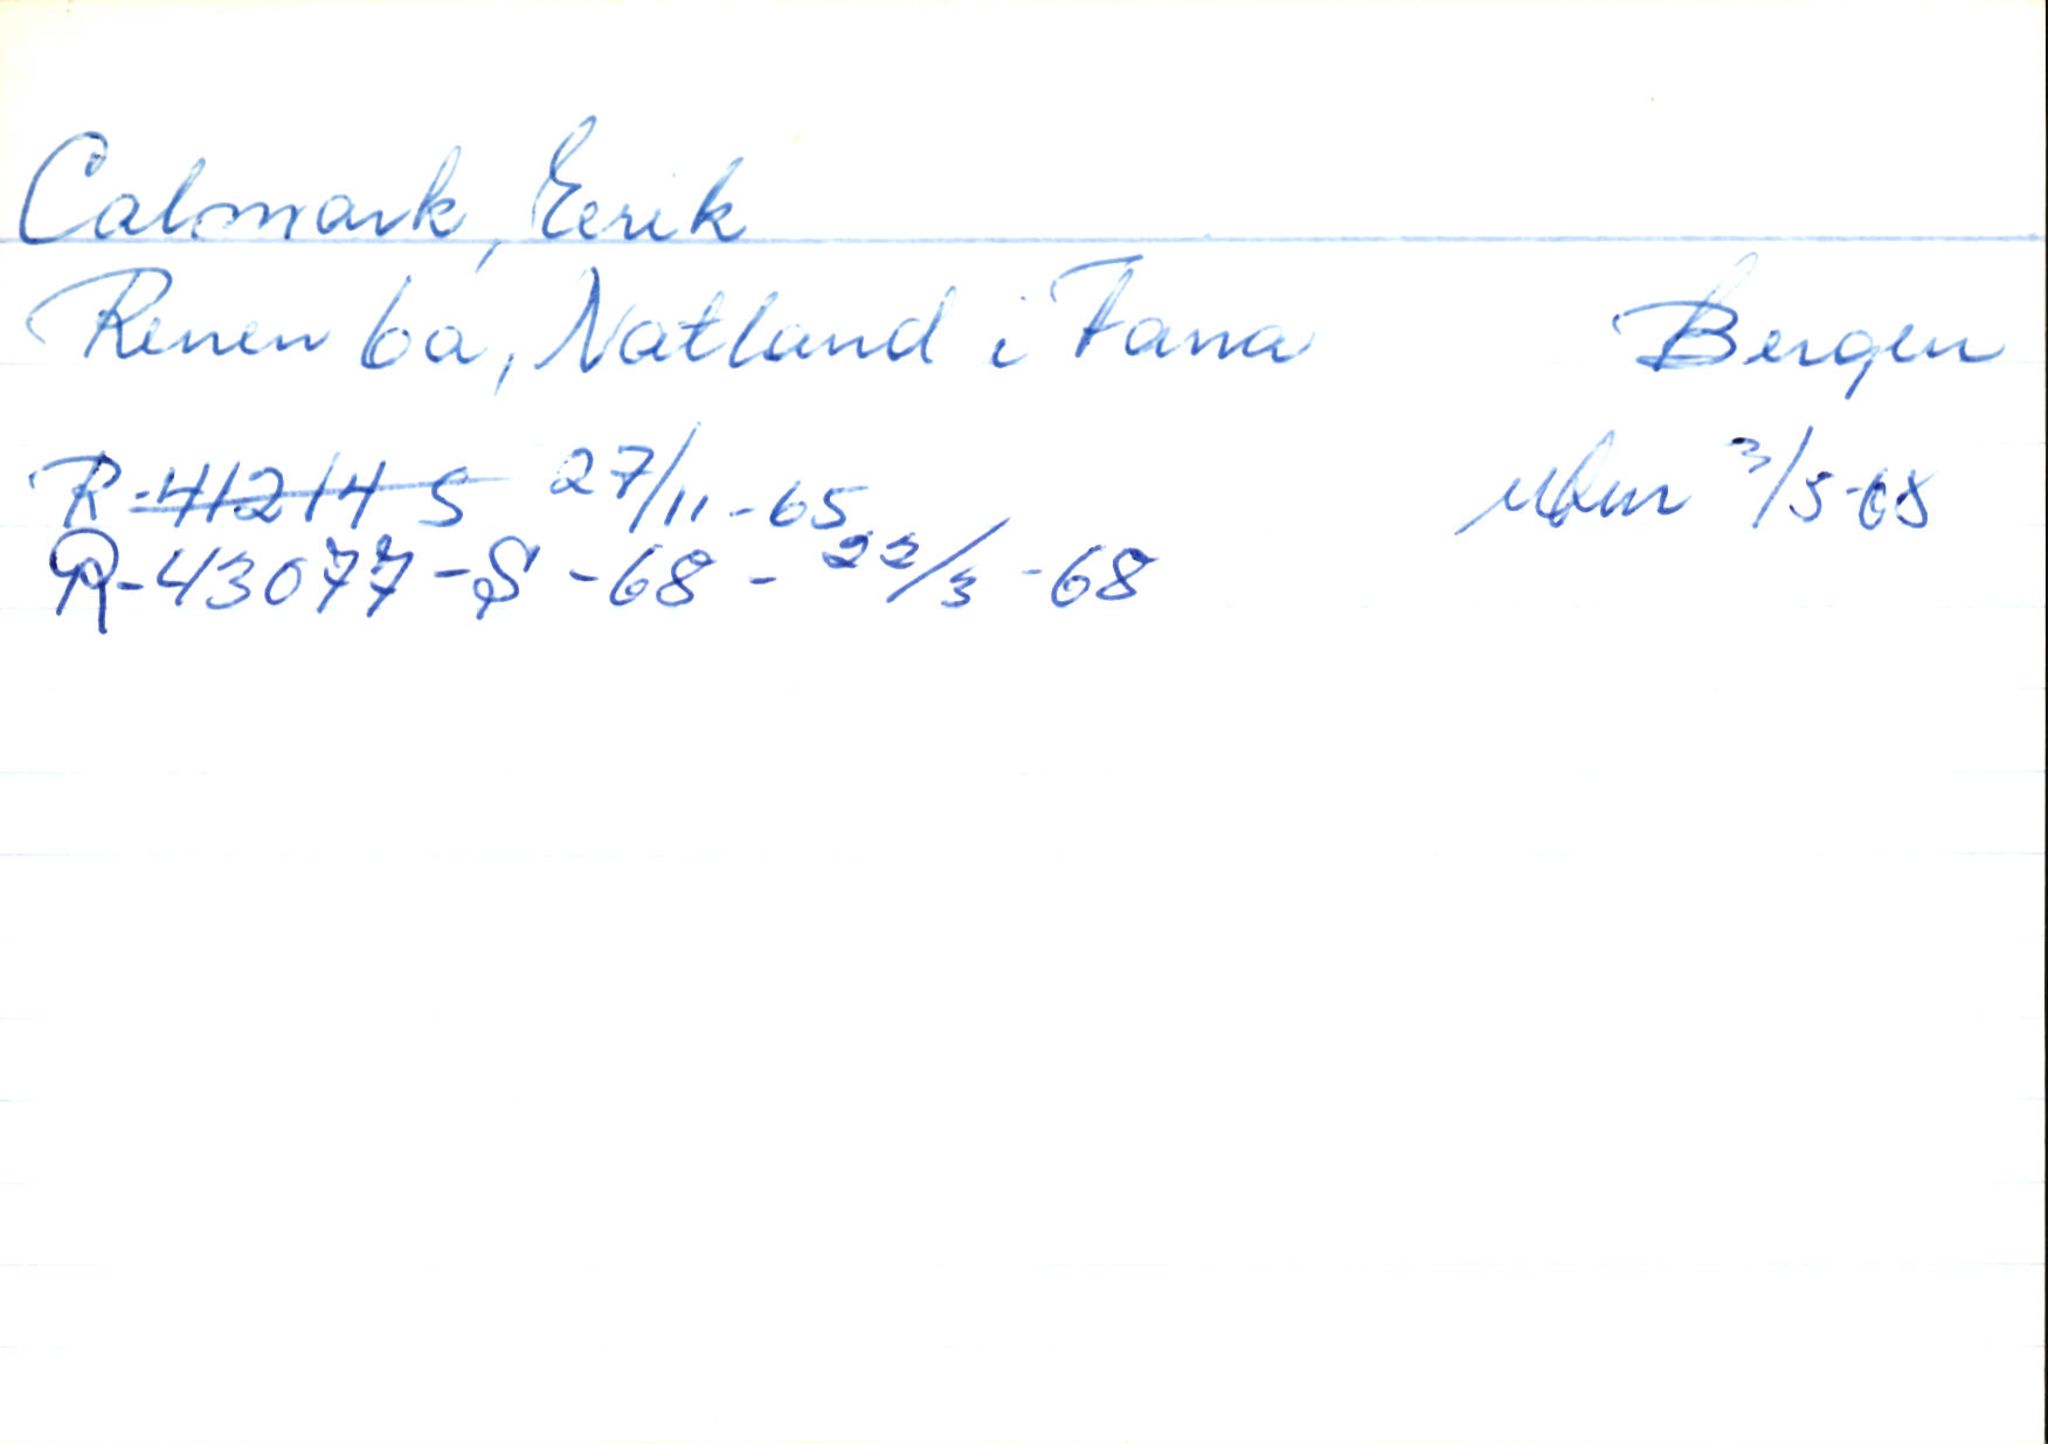 Calmark, Eerik
Renen 6a, Natland i Fana Bergen
R-41214 S 27/11-65 3/5-68
R-43077-S-68 - 22/3-68